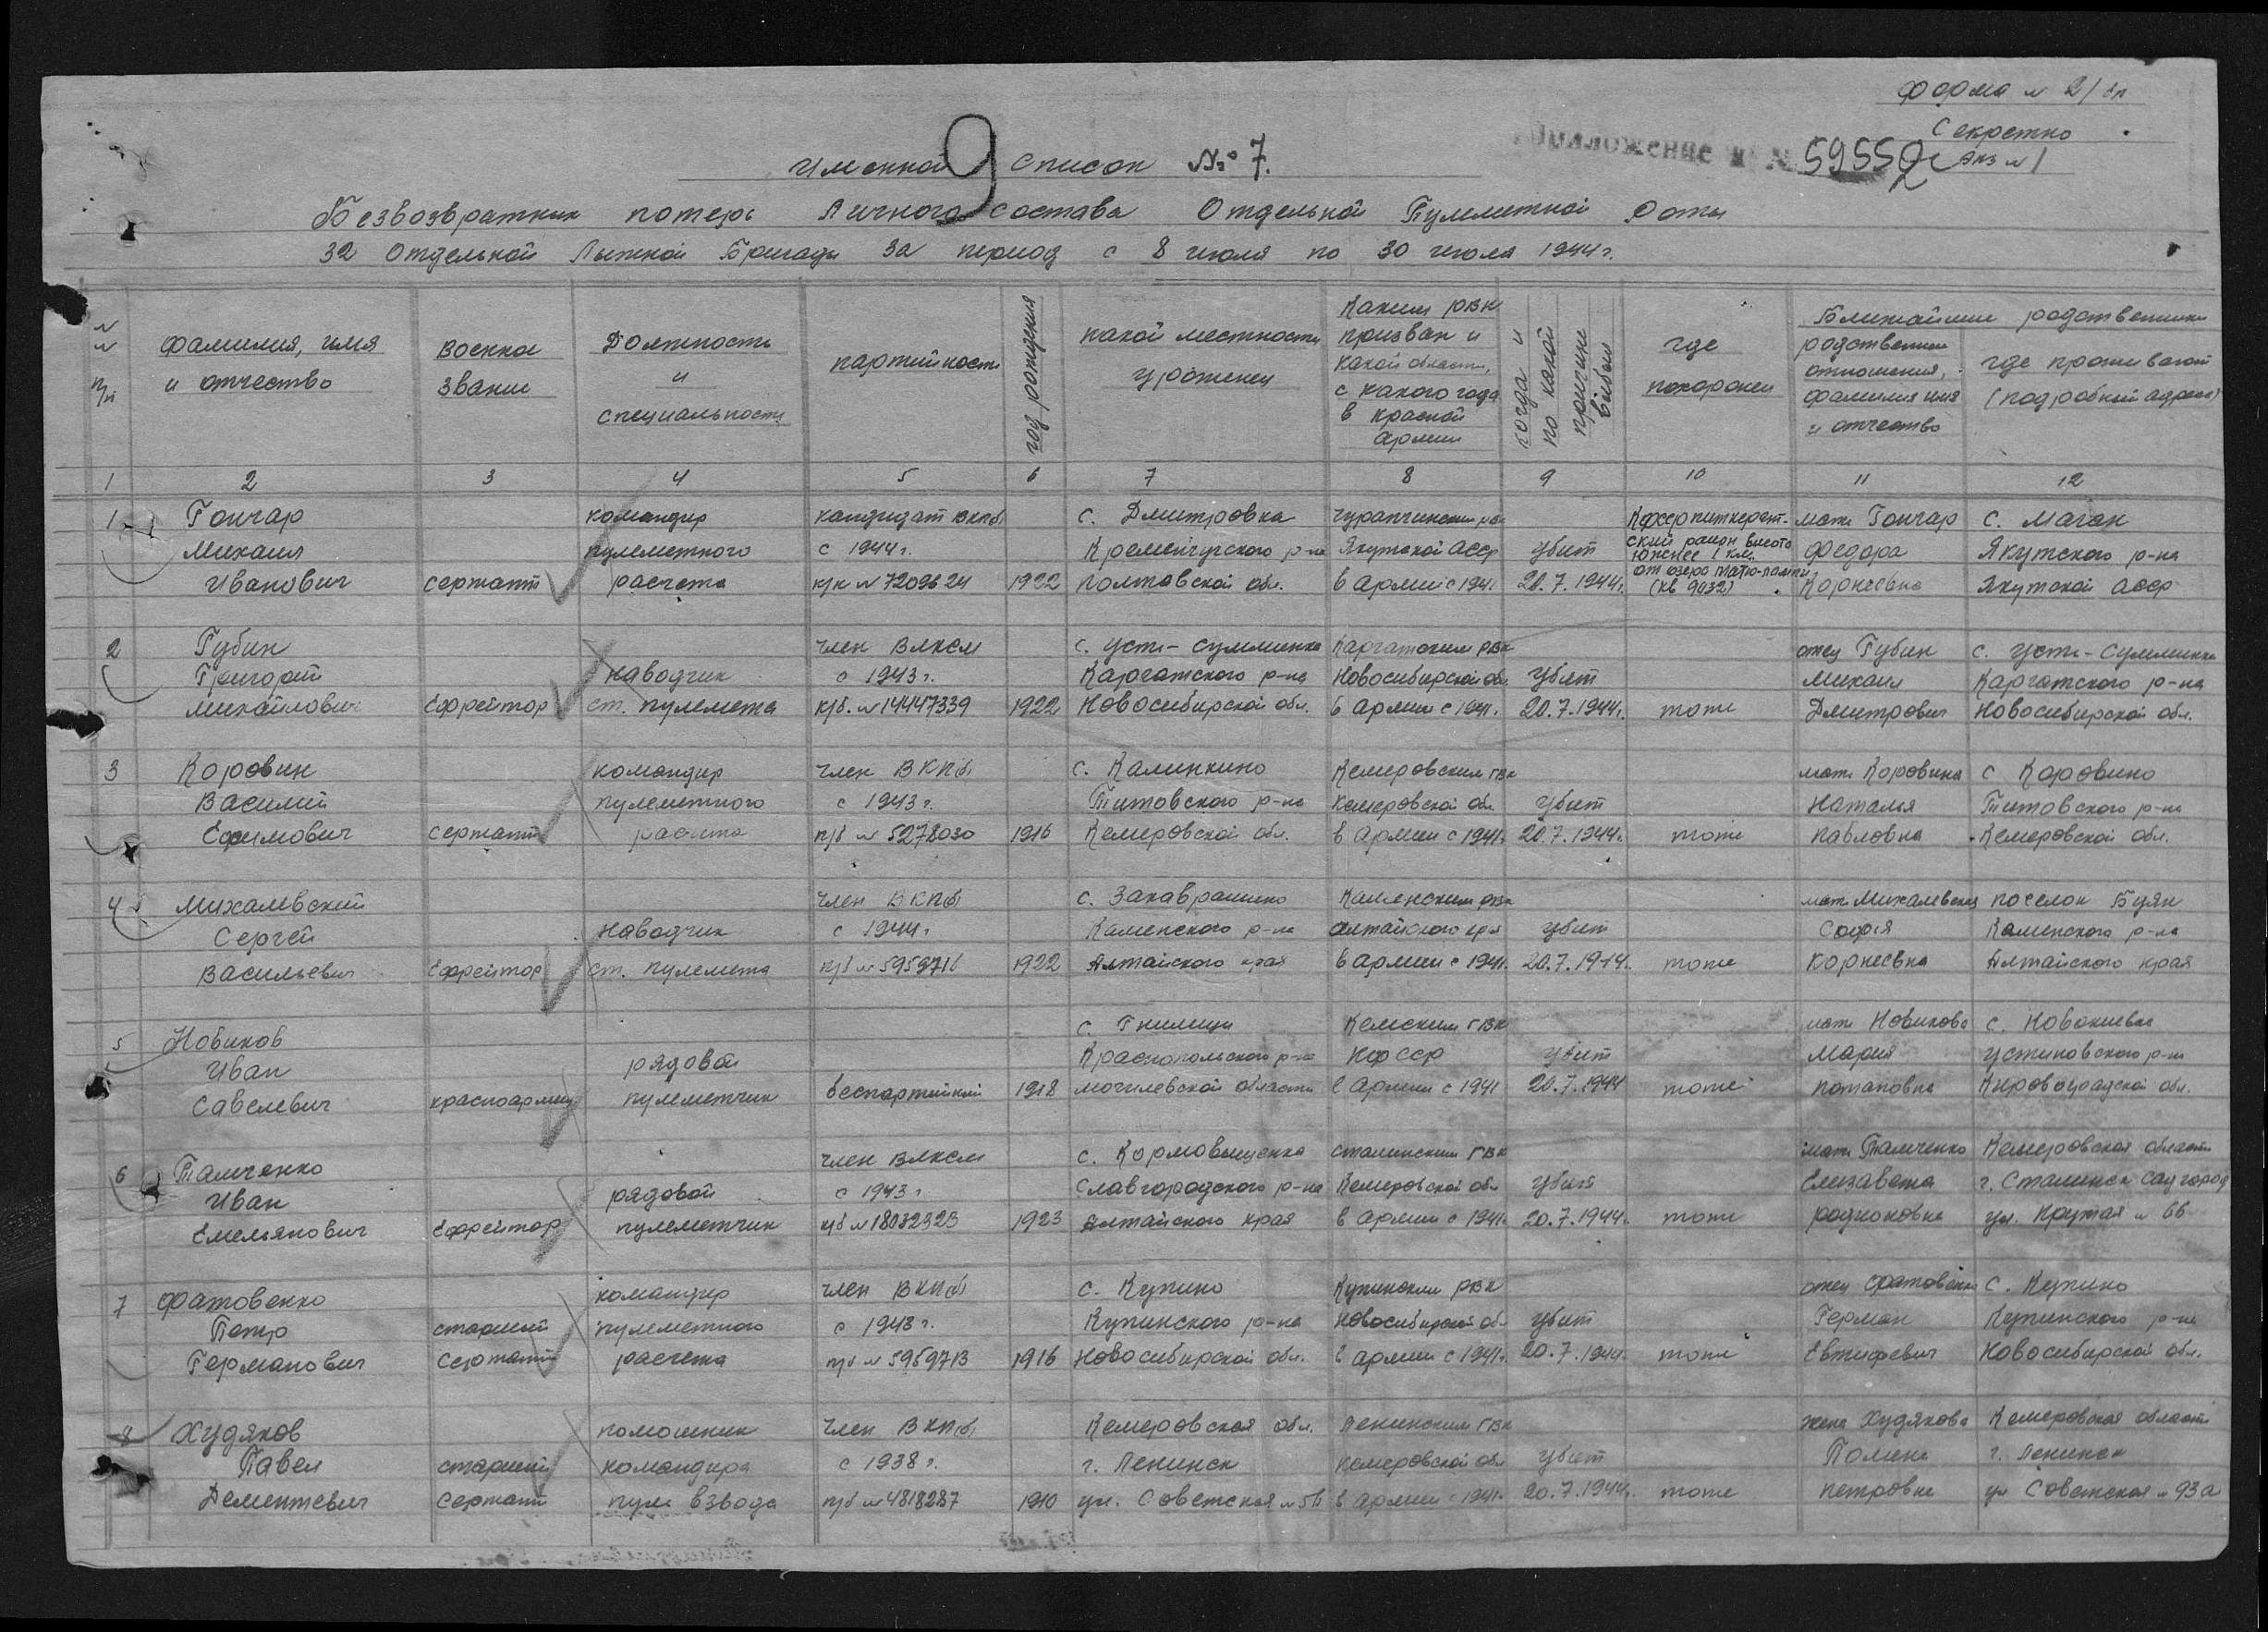 Форма № 2/бп
Секретно
Приложение к № 59552с Экз № 1
Именной список № 7.
9
Безвозвратных потерь Личного состава Отдельной Пулеметной Роты
32 Отдельной Лыжной Бригады за период с 8 июля по 30 июля 1944 г.
№ № п/п
фамилия, имя и отчество
военное звание
Должность и специальность
партийность
год рождения
какой местности уроженец
Каким РВК призван и какой области, с какого года в красной армии
когда и по какой причине выбыл
где похоронен
Ближайшие родственники
родственные отношения, фамилия имя и отчество
где проживают (подробный адрес)
1 2 3 4 5 6 7 8 9 10 11 12
1 Гончар командир кандидат ВКПб с. Дмитровка Чурапчинским РВК Кфсср питкярант- мать Гончар с. Маган
Михаил пулеметного с 1944 г. Кременчугского р-на Якутской АССР убит ский район высота южнее 1 км. Федора Якутского р-на
Иванович сержант расчета к/к № 7209624 1922 полтавской обл. в армии с 1941. 20.7.1944г. от озера (кв 9432) Корнеевна Якутской АССР
2 Губин член ВЛКСМ с. Усть-Сумминка Каргатским РВК отец Губин с. Усть-Сумминка
Григорий наводчик с 1943 г. Каргатского р-на Новосибирской об. убит Михаил Каргатского р-на
Михайлович Ефрейтор ст. пулемета к/б. № 14447339 1922 Новосибирской обл. в армии с 1941. 20.7.1944г. тоже Дмитрович Новосибирской обл.
3 Коровин командир член ВКПб с. Калинкино Кемеровским ГВК мать Коровина с Коровино
Василий пулеметного с 1943 г. Титовского р-на Кемеровской обл. убит Наталья Титовского р-на
Ефимович сержант расчета п/б № 5278030 1916 Кемеровской обл. в армии с 1941г. 20.7.1944г. тоже Павловна Кемеровской обл.
4 Михалевский член ВКПб с. Каменским РВК мать Михалевская поселок Буян
Сергей наводчик с 1944 г. Каменского р-на Алтайского края убит София Каменского р-на
Васильевич Ефрейтор ст. пулемета п/б № 5959716 1922 Алтайского края в армии с 1941. 20.7.1944. тоже Корнеевна Алтайского края
5 Новиков с. Гнилищи Кемским ГВК мать Новикова с. Новокиевка
Иван рядовой Краснопольского р-на КФССР убит Мария Устиновского р-на
Савелевич красноармеец пулеметчик беспартийный 1918 могилевской области в армии с 1941 20.7.1944 тоже потаповна Кировоградской обл.
6 Талченко член ВЛКСМ с. Сталинским ГВК мать Талченко Кемеровская область
Иван рядовой с 1943 г Славгородского р-на Кемеровской обл убит Елизавета г. Сталинск Соцгород
Емельянович Ефрейтор пулеметчик к/б № 18032323 1923 Алтайского края в армии с 1941. 20.7.1944. тоже родионовна ул. Крутая № 66
7 Фатовенко командир член ВКПб с. Купино Купинским РВК отец Фатовенко с. Купино
Петр старший пулеметного с 1943 г. Купинского р-на Новосибирской об. убит Герман Купинского р-на
Германович сержант расчета п/б № 5959713 1916 Новосибирской обл. в армии с 1941г. 20.7.1944. тоже Евтифевич Новосибирской обл.
8 Худяков помошник член ВКПб Кемеровская обл. Ленинским ГВК жена Худякова Кемеровская область
Павел старший командира с 1938 г. г. Ленинск Кемеровской обл убит г. Ленинск
Дементевич сержант пуле взвода п/б № 4818287 1910 ул. Советская в армии с 1941. 20.7.1944г. тоже петровна ул Советская № 93а